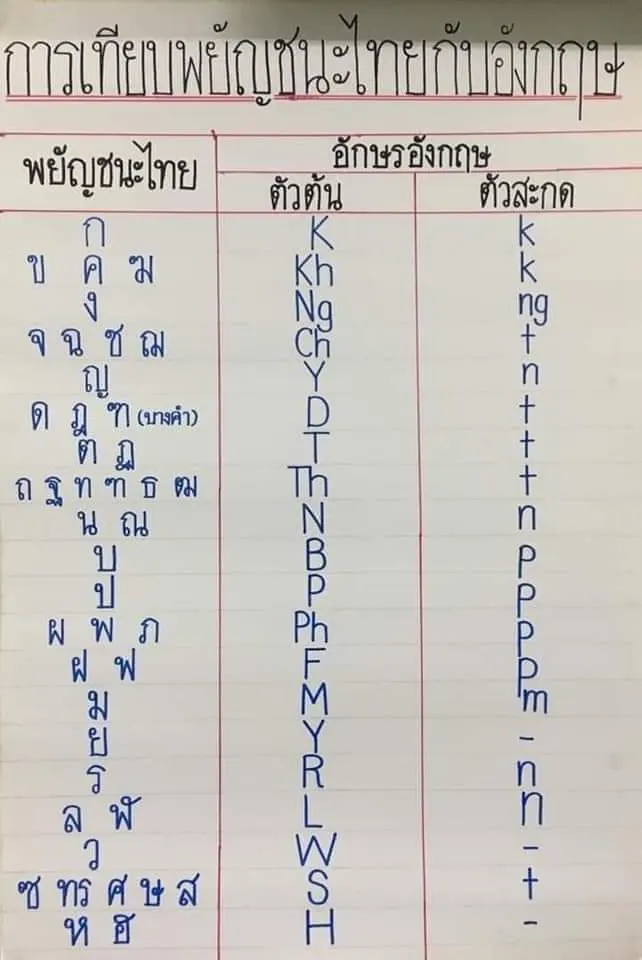 การเทียบพยัญชนะไทยกับอังกฤษ
พยัญชนะไทย อักษรอังกฤษ
ตัวต้น ตัวสะกด
ก K k
ข ค ฆ Kh k
ง Ng ng
จ ฉ ช ฌ Ch t
ญ Y n
ด ฎ ฑ (บางคำ) D t
ต ฏ T t
ถ ฐ ท ฑ ธ ฒ Th t
น ณ N n
บ B p
ป P p
ผ พ ภ Ph p
ฝ ฟ F p
ม M m
ย Y -
ร R n
ล ฬ L n
ว W -
ซ ทร ศ ษ ส S t
ห ฮ H -